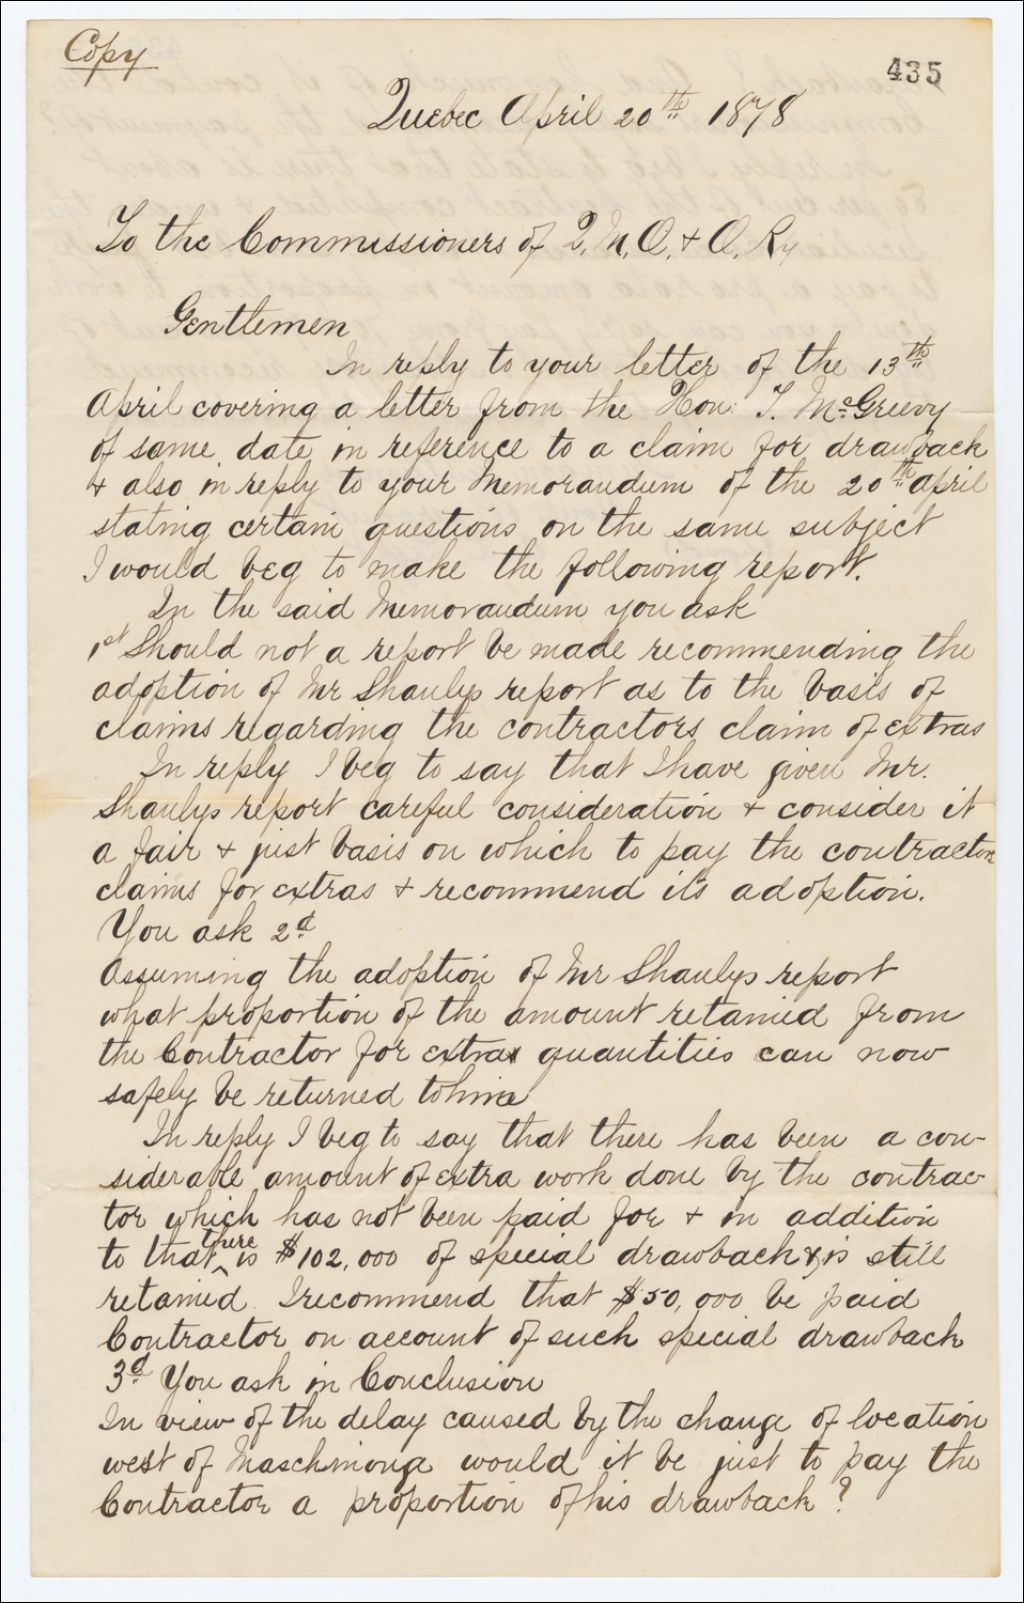 Copy
435
Quebec April 20th 1878
To the Commissioners of Q. M. O. & O. Ry
Gentlemen
In reply to your letter of the 13th
April covering a letter from the Hon: T. McGreevy
of same date in reference to a claim for drawback
& also in reply to your Memorandum of the 20th April
stating certain questions on the same subject
I would beg to make the following report.
In the said Memorandum you ask
1st Should not a report be made recommending the
adoption of Mr Shanlys report as to the basis of
claims regarding the contractors claim of extras
In reply I beg to say that I have given Mr.
Shanlys report careful consideration & consider it
a fair & just basis on which to pay the contractors
claims for extras & recommend its adoption.
You ask 2d
Assuming the adoption of Mr Shanlys report
what proportion of the amount retained from
the Contractor for extra quantities can now
safely be returned to him
In reply I beg to say that there has been a con-
siderable amount of extra work done by the contrac-
tor which has not been paid for & in addition
to that there is $102,000 of special drawback & is still
retained. I recommend that $50,000 be paid
Contractor on account of such special drawback
3d You ask in Conclusion
In view of the delay caused by the change of location
west of Maschinonga would it be just to pay the
Contractor a proportion of his drawback?